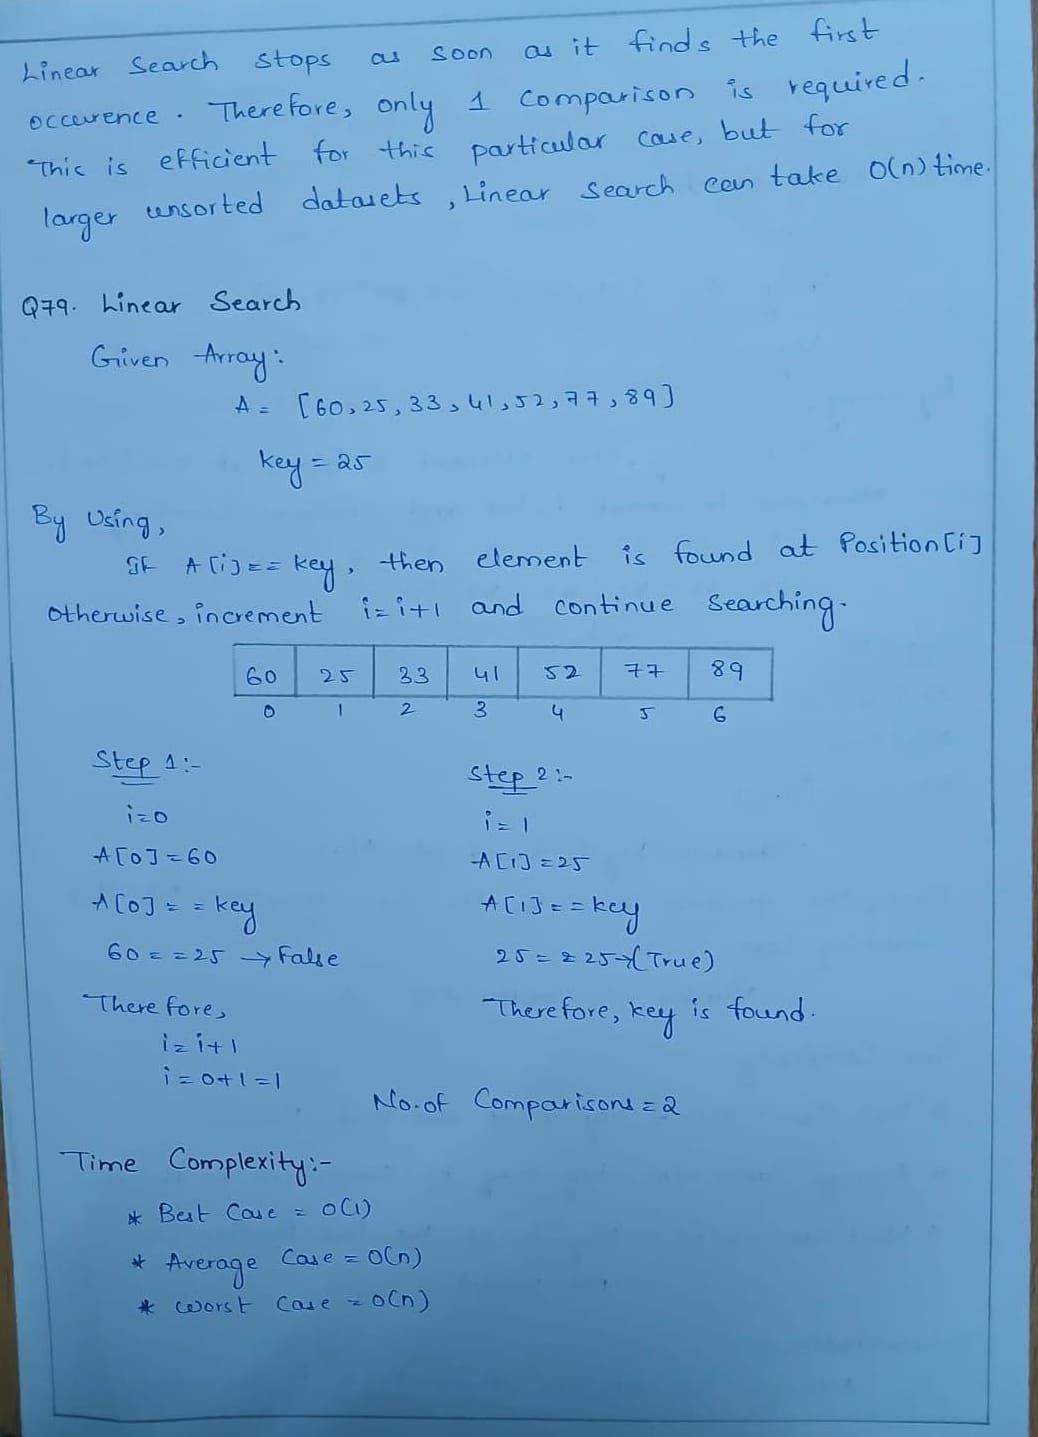 Linear Search stops as soon as it finds the first
occurence. Therefore, only 1 comparison is required.
This is efficient for this particular case, but for
larger unsorted datasets, Linear Search can take O(n) time.
Q79. Linear Search
Given Array:
A = [60, 25, 33, 41, 52, 77, 89]
key = 25
By Using,
If A[i] == key, then element is found at Position[i]
Otherwise, increment i = i+1 and continue searching.
60 25 33 41 52 77 89
0 1 2 3 4 5 6
Step 1:-
i=0
A[0] = 60
A[0] == key
60 == 25 → False
Therefore,
i = i+1
i = 0+1 = 1
Step 2:-
i = 1
A[1] = 25
A[1] == key
25 == 25 → (True)
Therefore, key is found.
No. of Comparisons = 2
Time Complexity:-
* Best Case = O(1)
* Average Case = O(n)
* Worst Case = O(n)